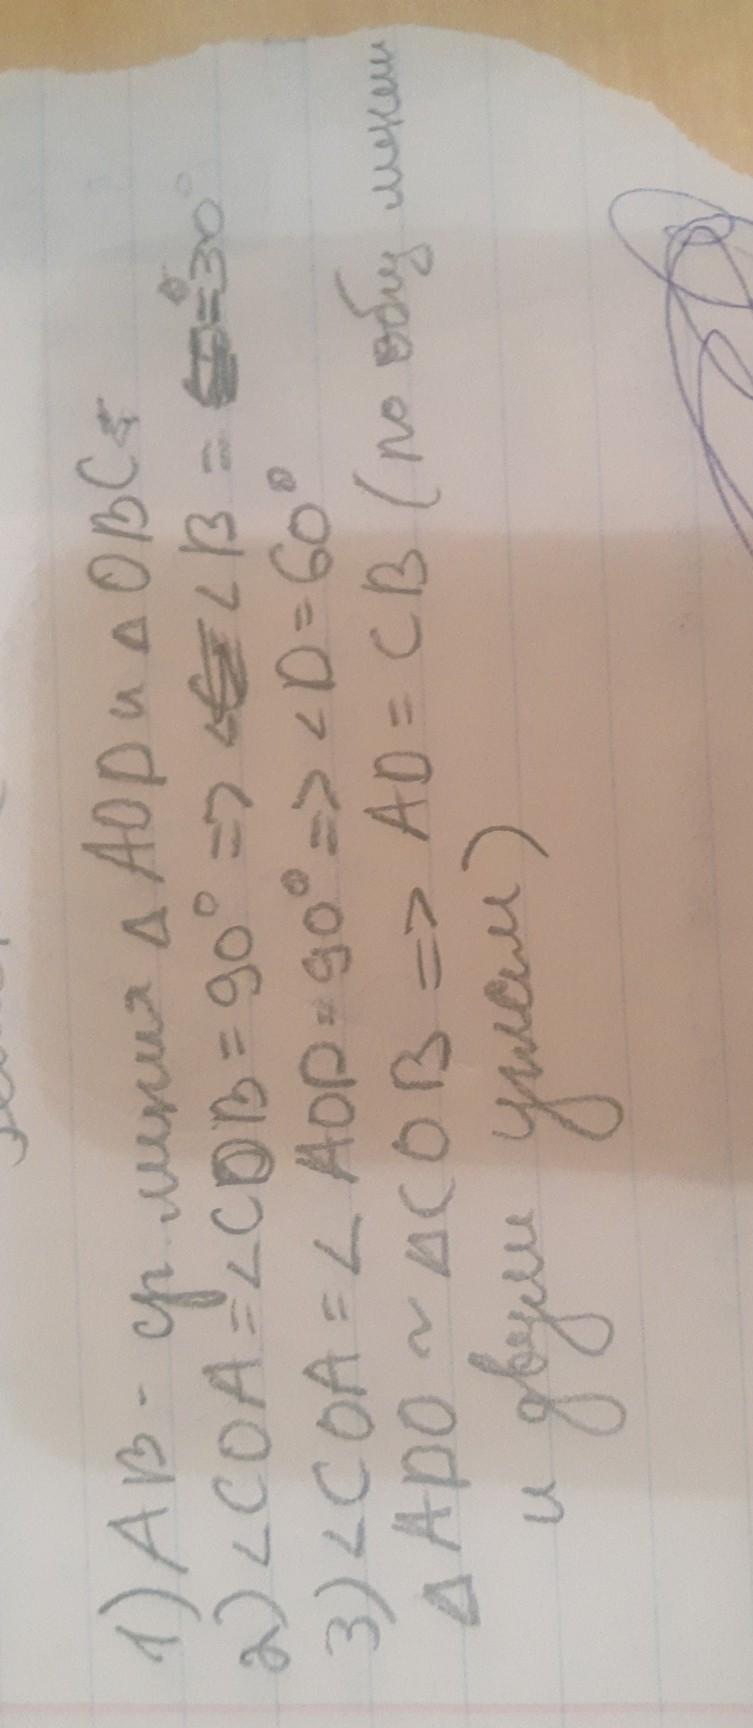 1) AB - ср. линия Δ AOD и Δ OBC
2) ∠COA = ∠COB = 90° => ∠B = 30°
3) ∠COA = ∠AOD = 90° => ∠D = 60°
Δ ADO ~ Δ COB => AD = CB (по общ
и двум углам)